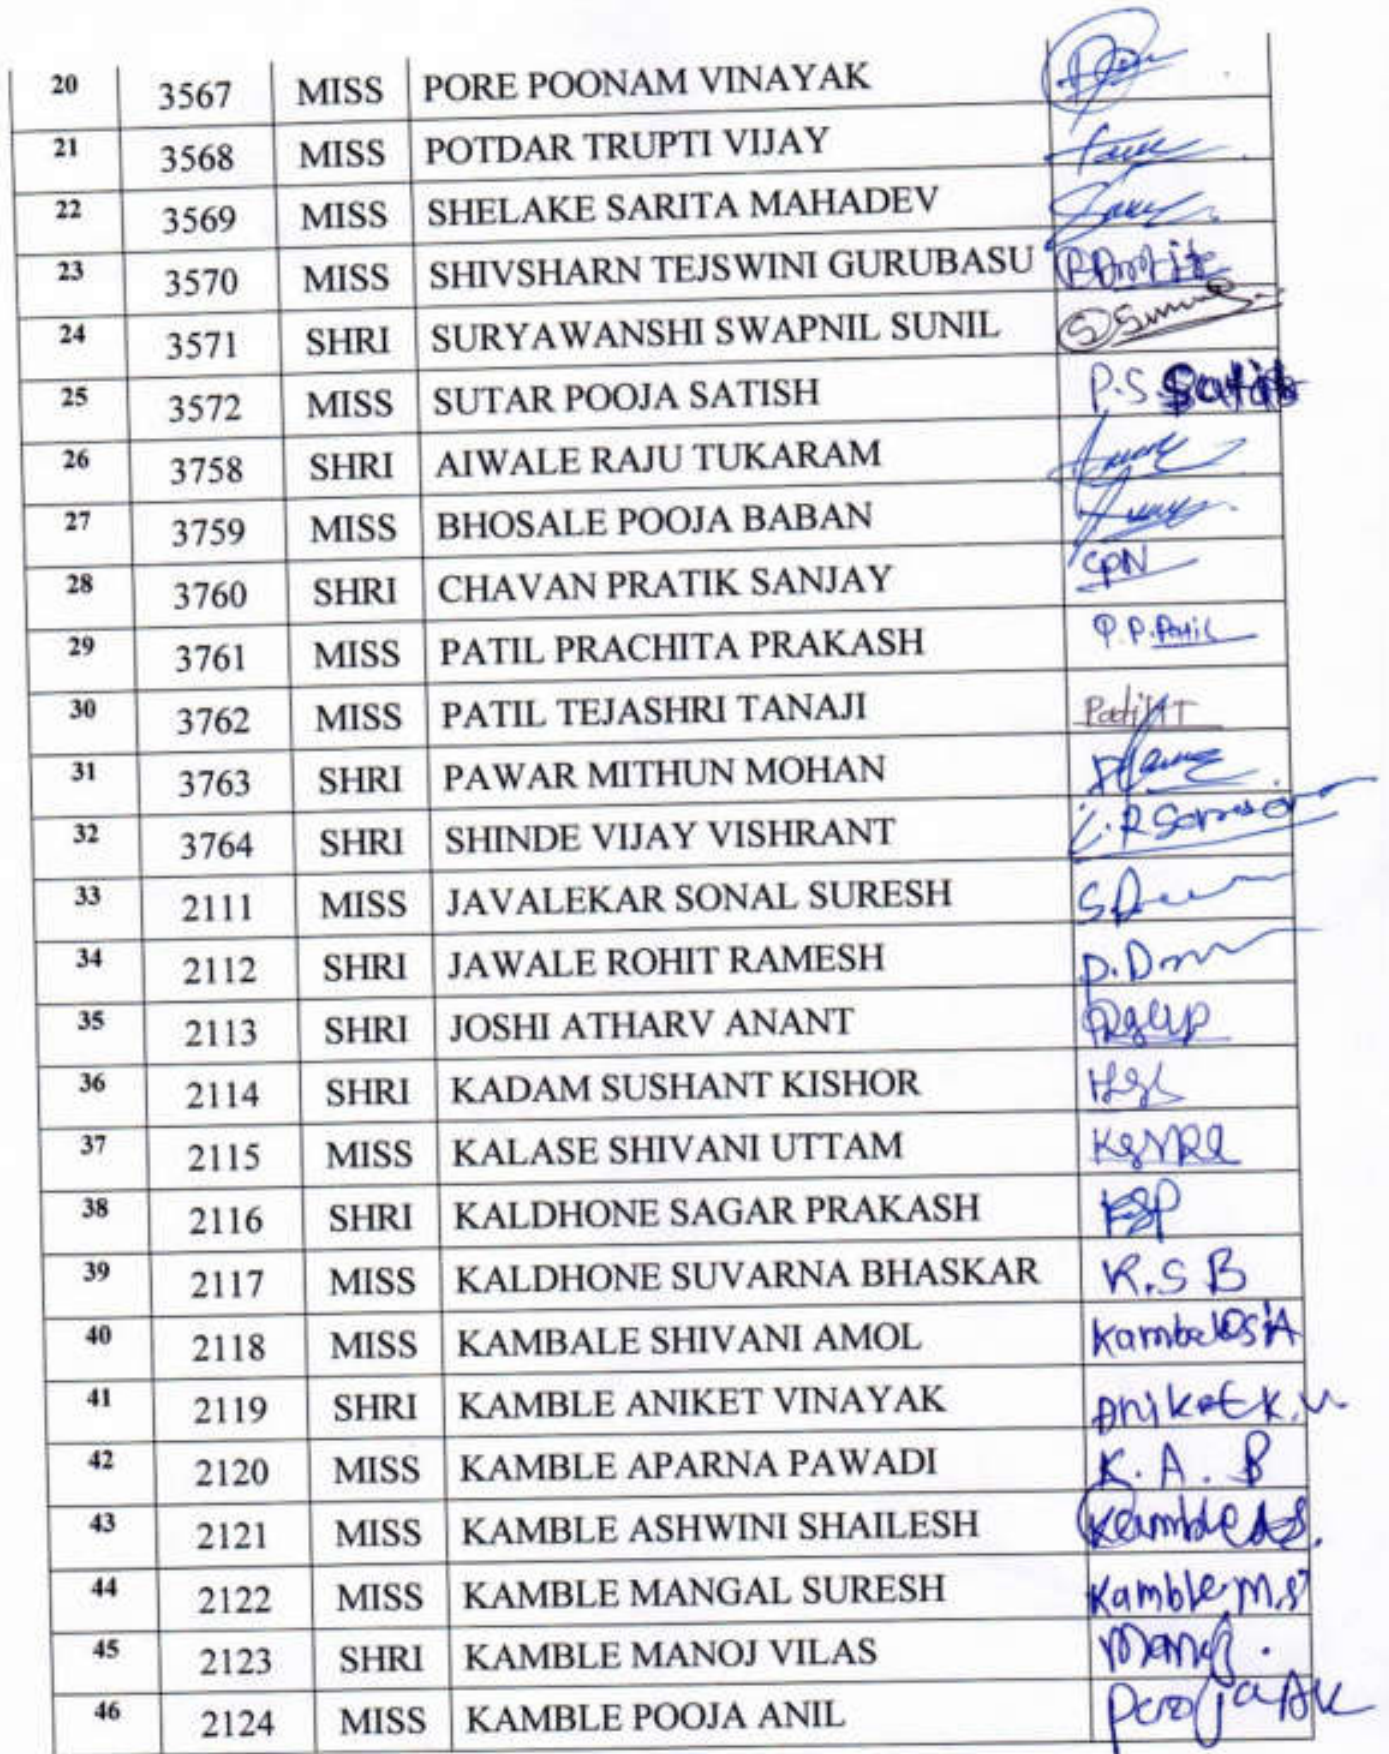 20 3567 MISS PORE POONAM VINAYAK
21 3568 MISS POTDAR TRUPTI VIJAY
22 3569 MISS SHELAKE SARITA MAHADEV
23 3570 MISS SHIVSHARN TEJSWINI GURUBASU
24 3571 SHRI SURYAWANSHI SWAPNIL SUNIL
25 3572 MISS SUTAR POOJA SATISH P.S.
26 3758 SHRI AIWALE RAJU TUKARAM
27 3759 MISS BHOSALE POOJA BABAN
28 3760 SHRI CHAVAN PRATIK SANJAY CPN
29 3761 MISS PATIL PRACHITA PRAKASH P.P.Patil
30 3762 MISS PATIL TEJASHRI TANAJI
31 3763 SHRI PAWAR MITHUN MOHAN
32 3764 SHRI SHINDE VIJAY VISHRANT
33 2111 MISS JAVALEKAR SONAL SURESH
34 2112 SHRI JAWALE ROHIT RAMESH
35 2113 SHRI JOSHI ATHARV ANANT
36 2114 SHRI KADAM SUSHANT KISHOR
37 2115 MISS KALASE SHIVANI UTTAM
38 2116 SHRI KALDHONE SAGAR PRAKASH KSP
39 2117 MISS KALDHONE SUVARNA BHASKAR K.S B
40 2118 MISS KAMBALE SHIVANI AMOL
41 2119 SHRI KAMBLE ANIKET VINAYAK Aniket K.V.
42 2120 MISS KAMBLE APARNA PAWADI K. A. B
43 2121 MISS KAMBLE ASHWINI SHAILESH Kamble A.S.
44 2122 MISS KAMBLE MANGAL SURESH Kamble M.S
45 2123 SHRI KAMBLE MANOJ VILAS Manoj.
46 2124 MISS KAMBLE POOJA ANIL Pooja AK